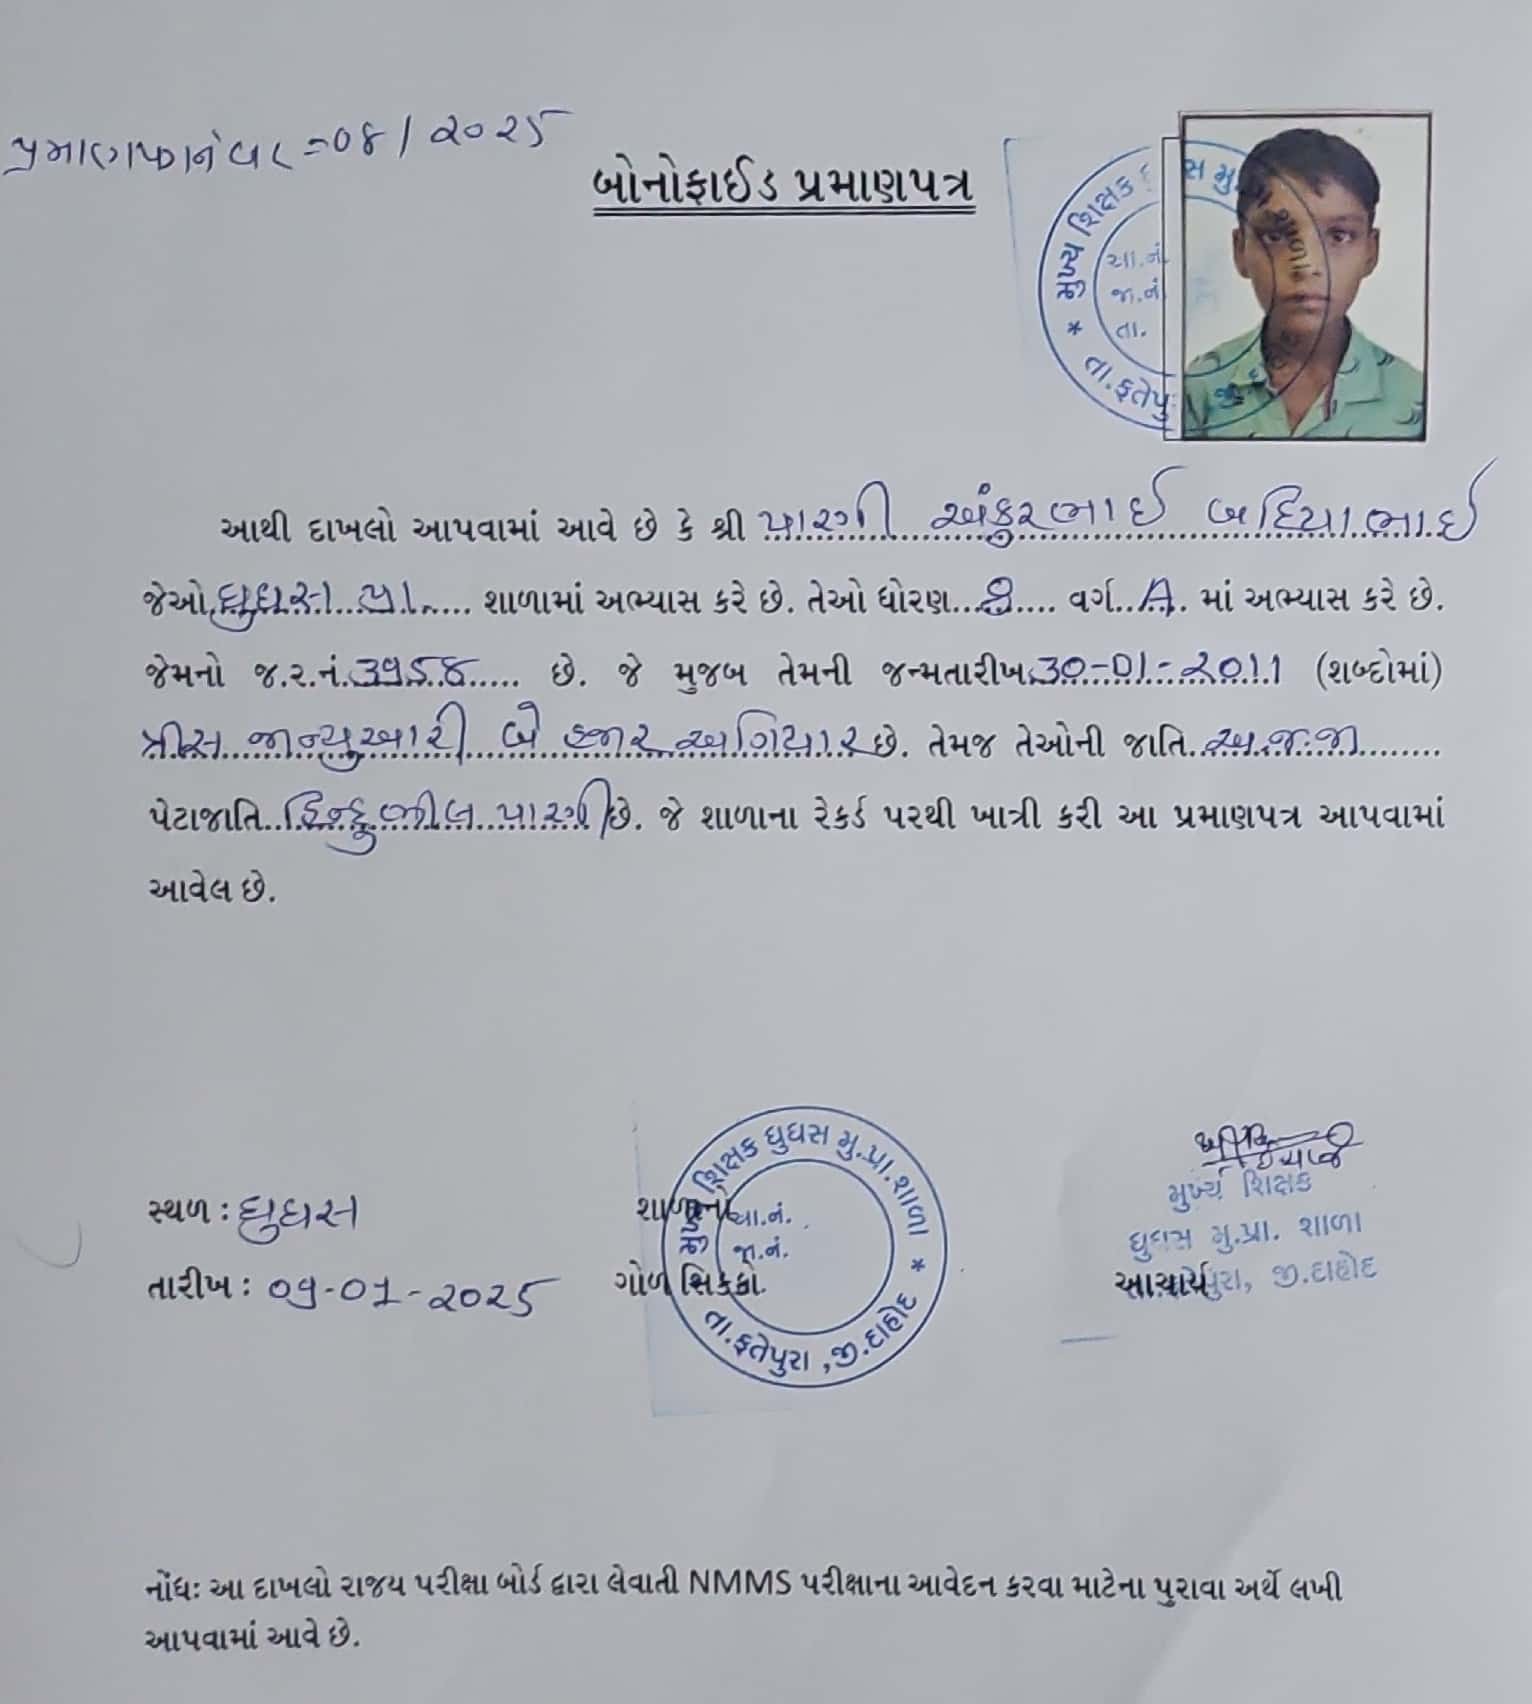 પ્રમાણપત્રનંબર =08/૨૦૨5
બોનોફાઈડ પ્રમાણપત્ર
મુખ્ય શિક્ષક સ મુ.
ચા.નં.
જા.નં.
તા.
તા.ફતેપુ
આથી દાખલો આપવામાં આવે છે કે શ્રી પારગી અંકુરભાઈ બદિયાભાઈ
જેઓ ઘુઘસ પ્રા. શાળામાં અભ્યાસ કરે છે. તેઓ ધોરણ 8 વર્ગ A માં અભ્યાસ કરે છે.
જેમનો જ.ર.નં. છે. જે મુજબ તેમની જન્મતારીખ 30-01-૨011 (શબ્દોમાં)
ત્રીસ જાન્યુઆરી બે હજાર અગિયાર છે. તેમજ તેઓની જાતિ અ.જ.જા
પેટાજાતિ હિન્દુ ભીલ પારગી છે. જે શાળાના રેકર્ડ પરથી ખાત્રી કરી આ પ્રમાણપત્ર આપવામાં
આવેલ છે.
મુખ્ય શિક્ષક ઘુઘસ મુ.પ્રા.શાળા
સ્થળ : ઘુઘસ
શાળાનો
ચા.નં.
જા.નં.
તારીખ : ૦૧-૦1-૨૦૨5
ગોળ સિક્કો.
તા.ફતેપુરા ,જી.દાહોદ
ઈચાર્જ
મુખ્ય શિક્ષક
ઘુઘસ મુ.પ્રા. શાળા
પુરા, જી.દાહોદ
આચાર્ય
નોંધઃ આ દાખલો રાજય પરીક્ષા બોર્ડ દ્વારા લેવાતી NMMS પરીક્ષાના આવેદન કરવા માટેના પુરાવા અર્થે લખી
આપવામાં આવે છે.